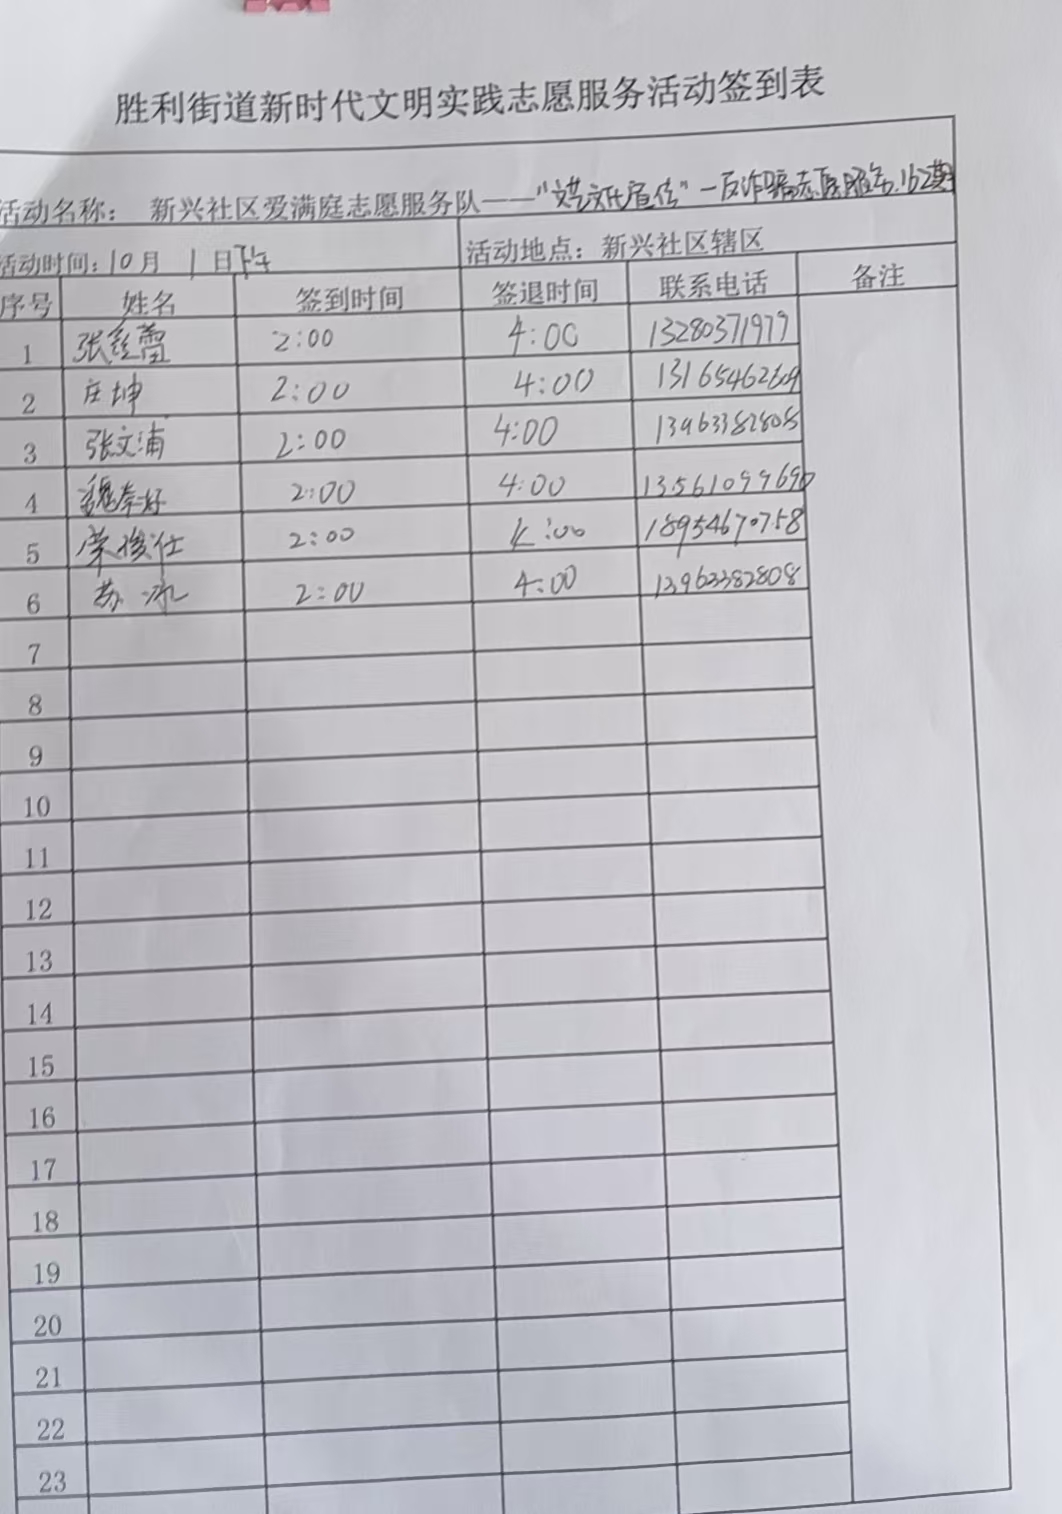 胜利街道新时代文明实践志愿服务活动签到表
活动名称： 新兴社区爱满庭志愿服务队——“文艺文化宣传”—反诈骗志愿服务.162期
活动时间：10月 1日下午 活动地点：新兴社区辖区
序号 姓名 签到时间 签退时间 联系电话 备注
1 张 蕾 2:00 4:00 13280371979
2 庄坤 2:00 4:00 13165462609
3 张文浦 2:00 4:00 13963382808
4 魏 好 2:00 4:00 13561099690
5 荣俊仕 2:00 4:00 18954670758
6 苏冰 2:00 4:00 13963382808
7
8
9
10
11
12
13
14
15
16
17
18
19
20
21
22
23